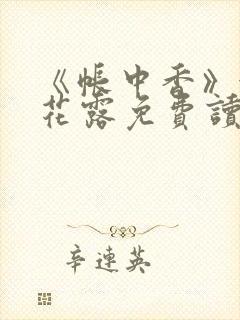 《帳中香》
花露免費讀
辛連英